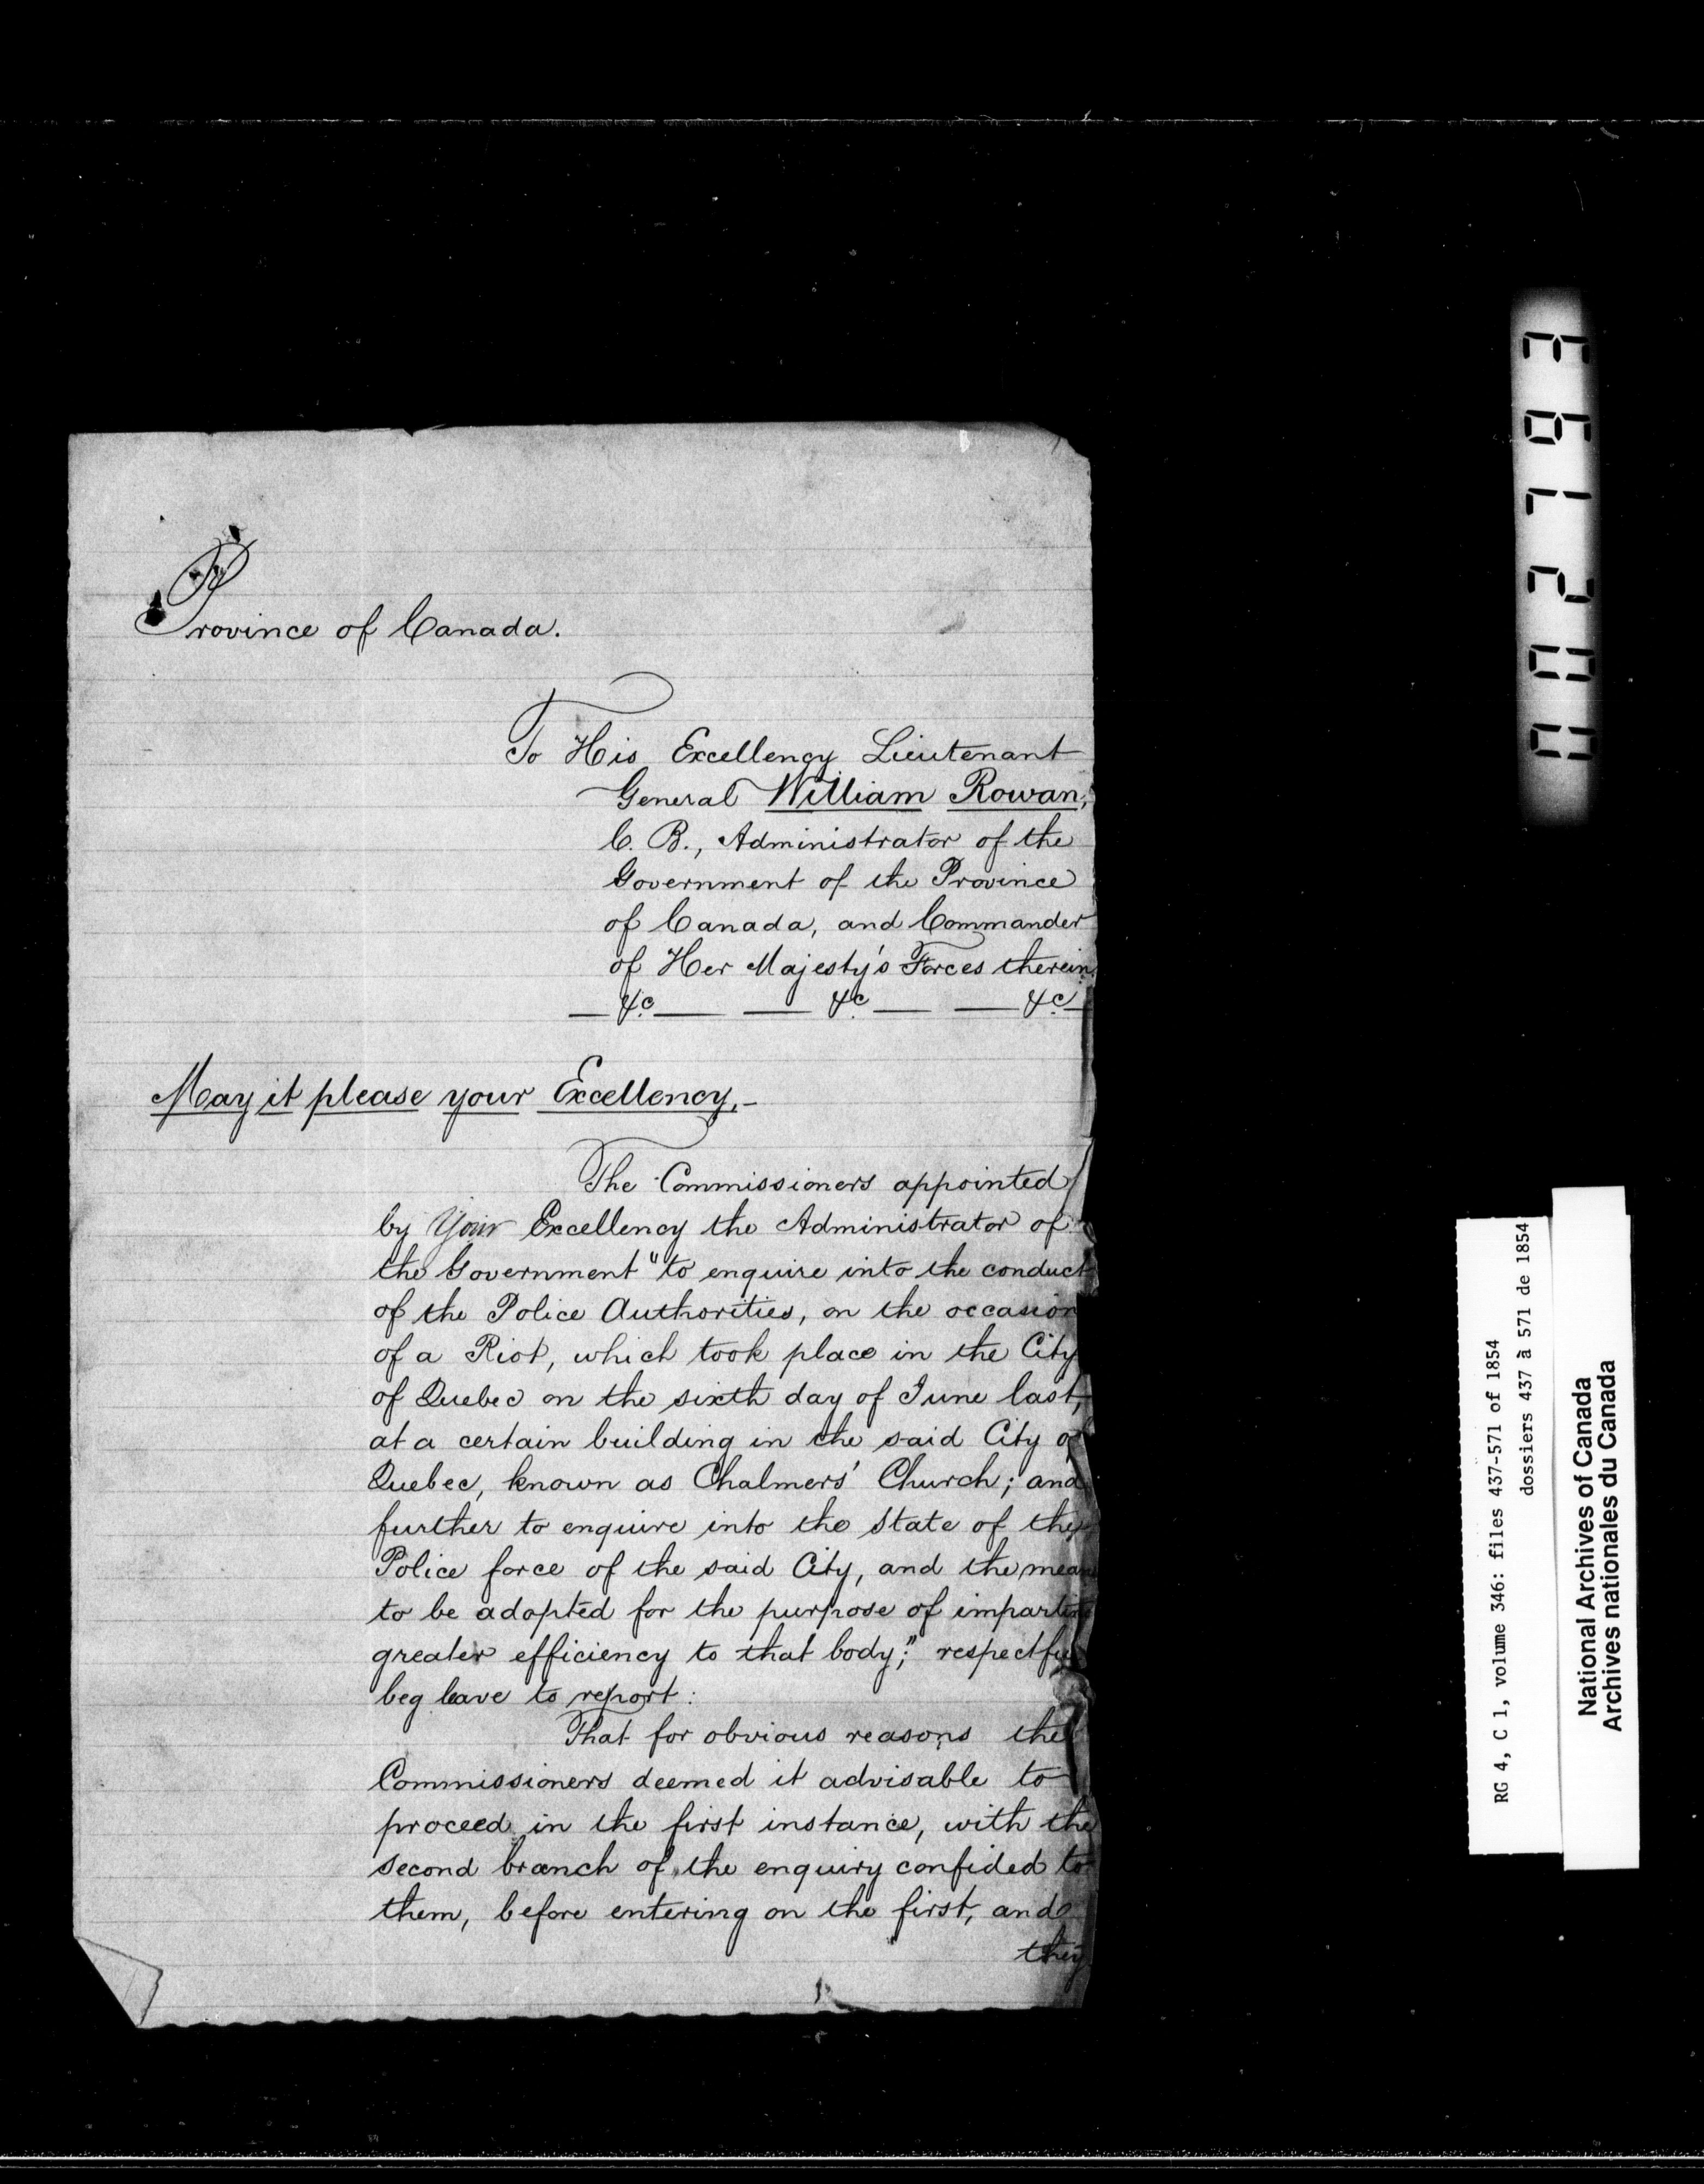 Province of Canada.
To His Excellency Lieutenant
General William Rowan,
C. B., Administrator of the
Government of the Province
of Canada, and Commander
of Her Majesty's Forces therein
&c &c &c
May it please your Excellency,-
The Commissioners appointed
by Your Excellency the Administrator of
the Government "to enquire into the conduct
of the Police Authorities, on the occasion
of a Riot, which took place in the City
of Quebec on the sixth day of June last,
at a certain building in the said City of
Quebec, known as Chalmers' Church; and
further to enquire into the State of the
Police force of the said City, and the mean
to be adopted for the purpose of imparting
greater efficiency to that body;" respectfu
beg leave to report:
That for obvious reasons the
Commissioners deemed it advisable to
proceed in the first instance, with the
second branch of the enquiry confided to
them, before entering on the first, and
they
RG 4, C 1, volume 346: files 437-571 of 1854
dossiers 437 à 571 de 1854
National Archives of Canada
Archives nationales du Canada